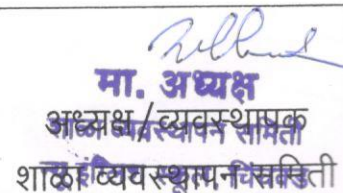 मा. अध्यक्ष
अध्यक्ष/व्यवस्थापक
शाळा व्यवस्थापन समिती
शाळा व्यवस्थापन समिती